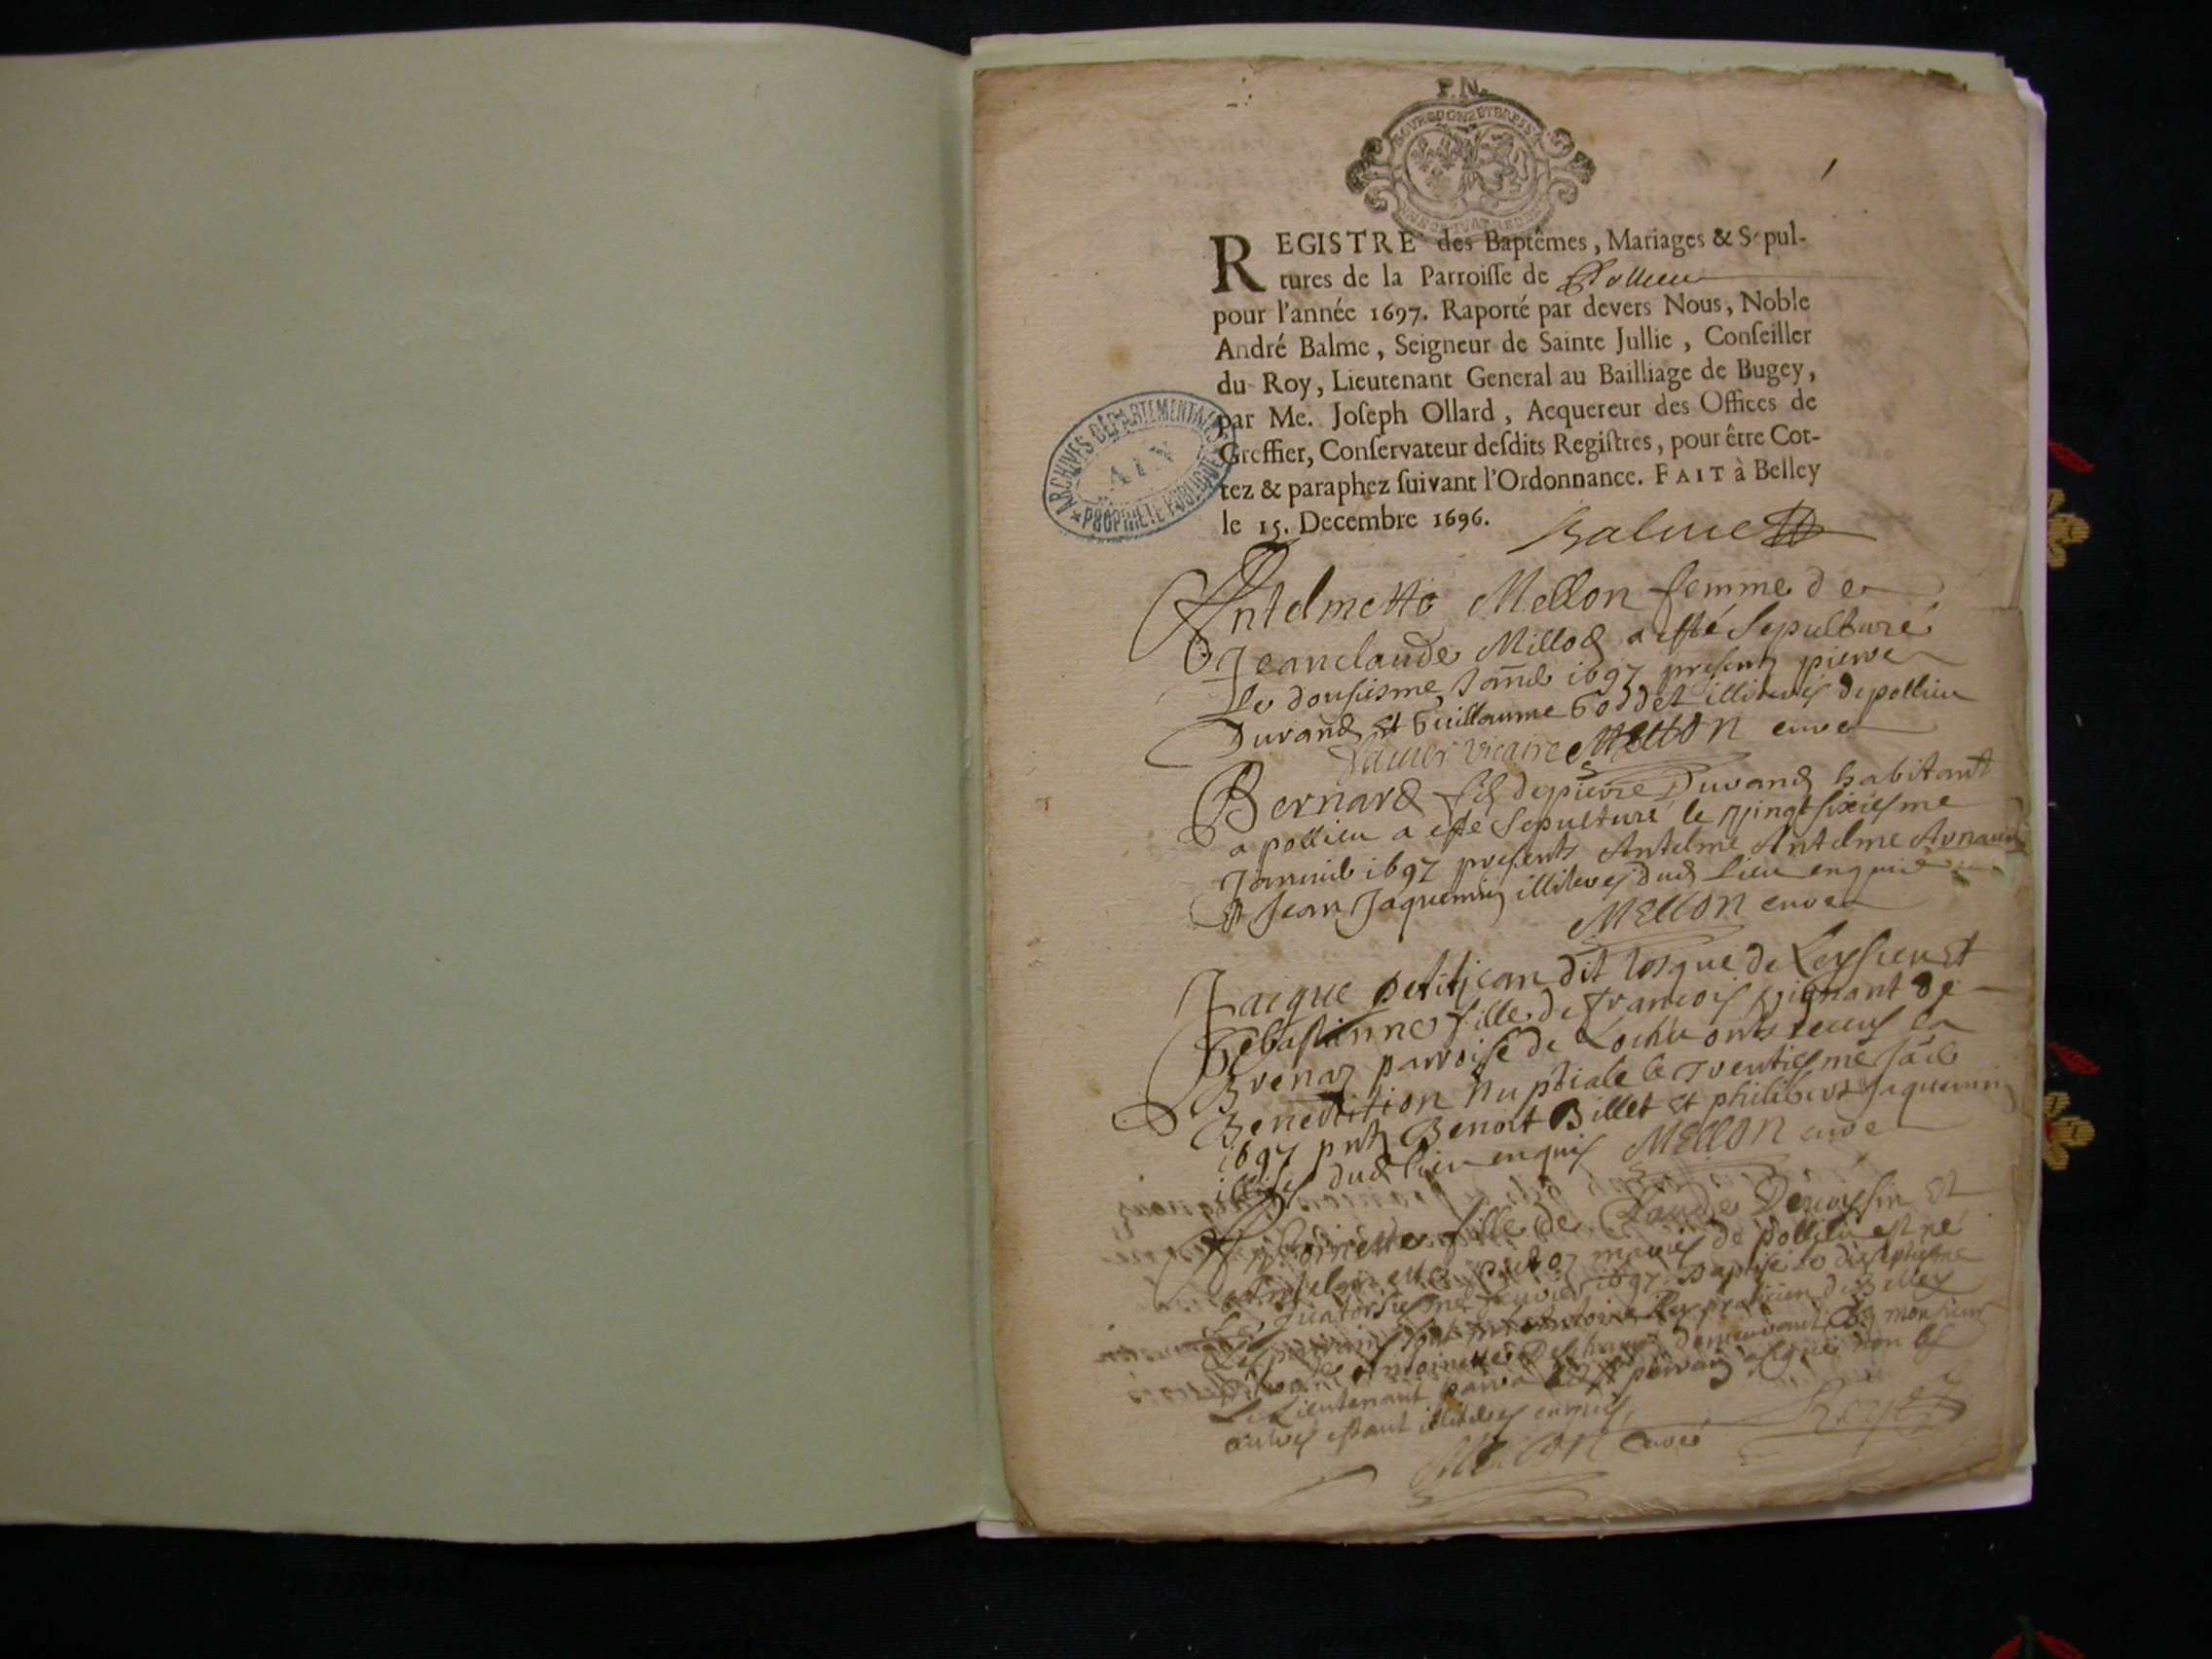 P.N.
BOURGOGNE ET BRESSE
1
REGISTRE des Baptêmes, Mariages & Sepul-
tures de la Parroisse de Pollieu
pour l'année 1697. Raporté par devers Nous, Noble
André Balme, Seigneur de Sainte Jullie, Conseiller
du Roy, Lieutenant General au Bailliage de Bugey,
par Me. Joseph Ollard, Acquereur des Offices de
Greffier, Conservateur desdits Registres, pour être Cot-
tez & paraphez suivant l'Ordonnance. FAIT à Belley
le 15. Decembre 1696.
Balme
ARCHIVES DÉPARTEMENTALES
AIN
PROPRIÉTÉ PUBLIQUE
Antelmette Mellon femme de
Jeanclaude Millod a esté sepulturé
le dousiesme 1697 present pierre
Durand et Guillaume Goddet illiterés de pollieu
vicaire Mellon curé
Bernard fils de pierre Durand habitant
a pollieu a esté sepulturé le vingtsixiesme
1697 presents Antelme Antelme Arnaud
et Jean Jaquemin illiteres dud lieu enquis
Mellon curé
Jacque petitjean dit de Leyssieu et
Sebastienne fille de francois de
Brenaz parroisse de Lochieu ont receus la
Benediction Nuptiale le trentiesme
1697 pnts Benoit Billet et philibert Jaquemin
dud lieu enquis Mellon curé
fille de Claude et
mariés de pollieu est né
le quatorsiesme 1697 Baptisé le dixseptiesme
les parrains sont praticien de Belley
et Antoinette demeurant monsieur
le Lieutenant parrain signé non les
autres estant illiteres enquis
Mellon curé